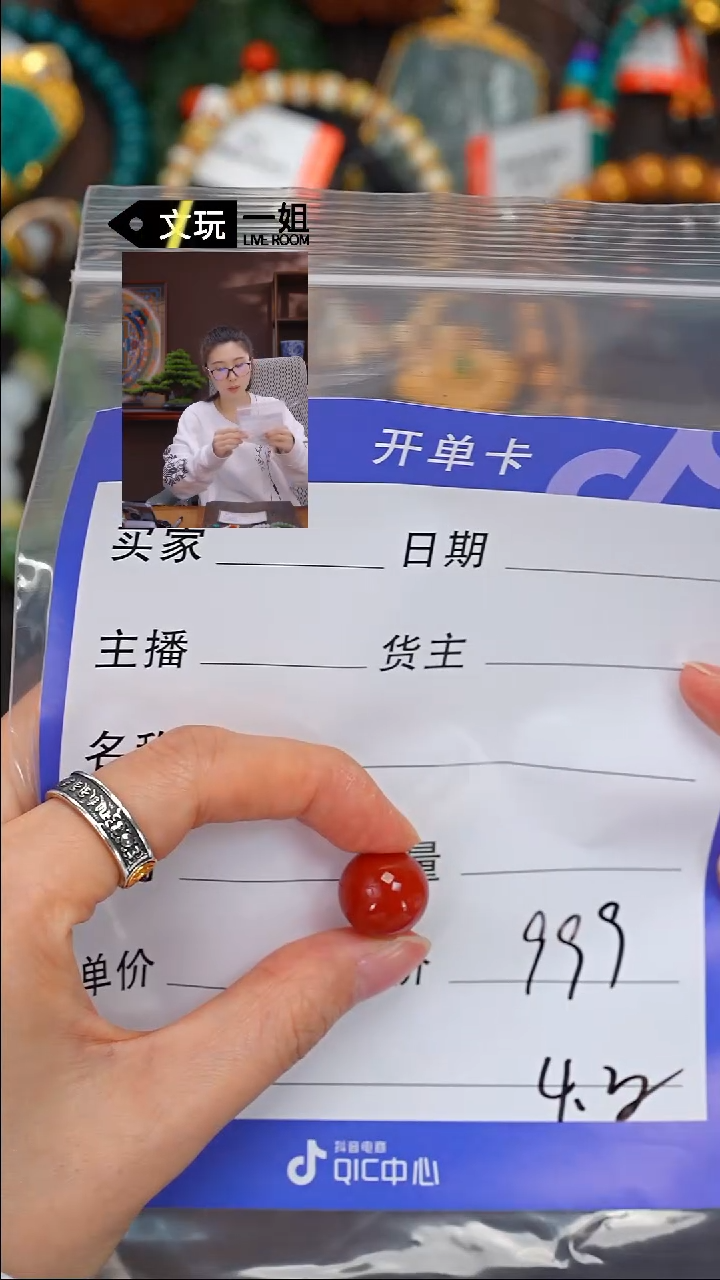 文玩一姐
LIVE ROOM
开单卡
买家 日期
主播 货主
名称
量
单价 价
999
4.2
抖音电商
QIC中心